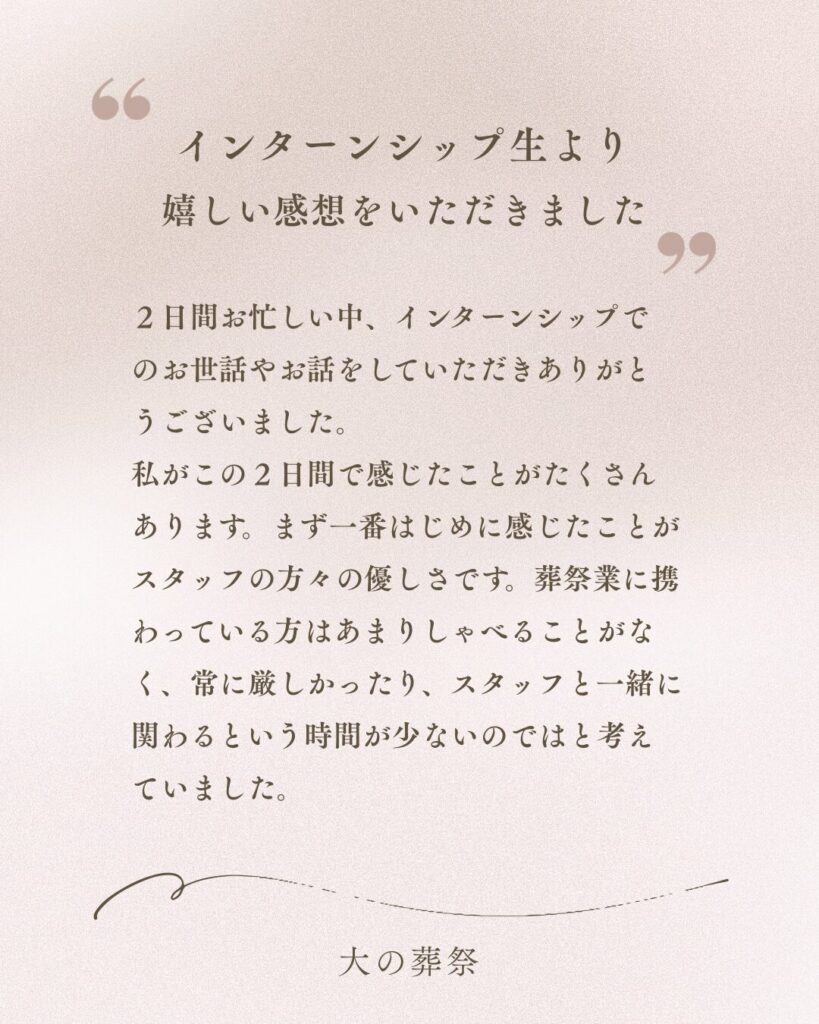 インターンシップ生より
嬉しい感想をいただきました
２日間お忙しい中、インターンシップで
のお世話やお話をしていただきありがと
うございました。
私がこの２日間で感じたことがたくさん
あります。まず一番はじめに感じたことが
スタッフの方々の優しさです。葬祭業に携
わっている方はあまりしゃべることがな
く、常に厳しかったり、スタッフと一緒に
関わるという時間が少ないのではと考え
ていました。
大の葬祭